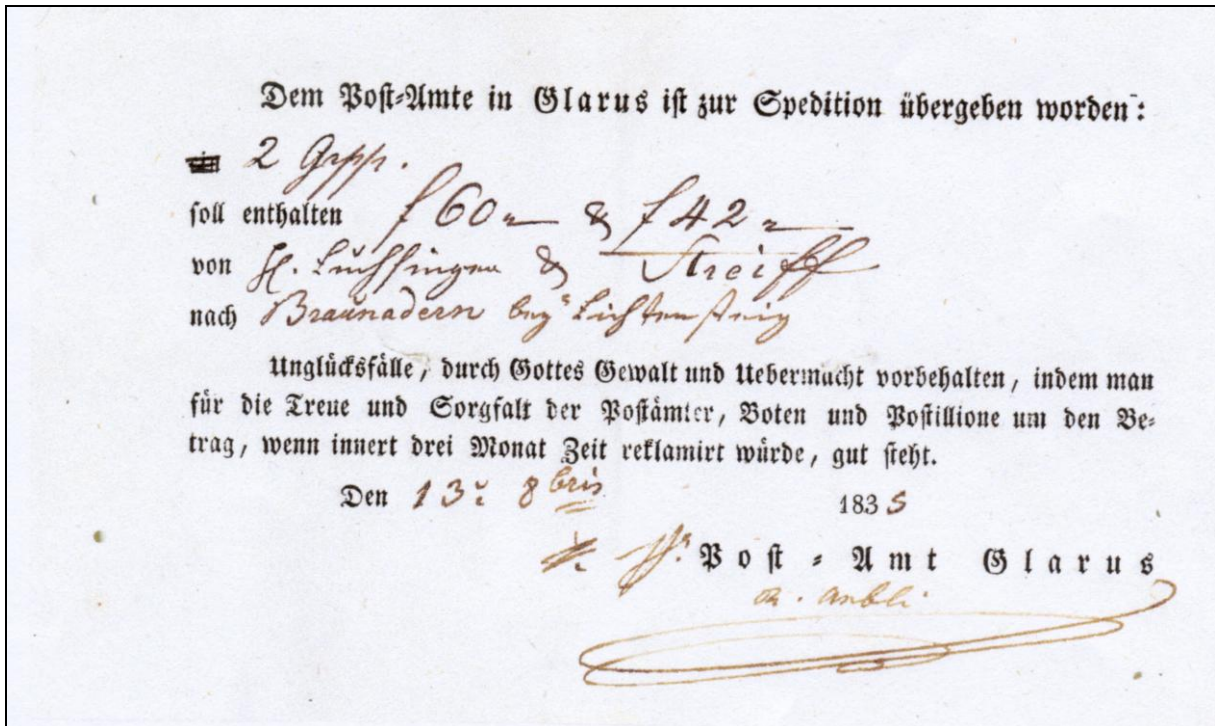 Dem Post-Amte in Glarus ist zur Spedition übergeben worden:
2 Grpp.
soll enthalten f 60 „ & f 42 „
von H. Luchsinger & Streiff
nach Braunadern bey Lichtensteig
Unglücksfälle, durch Gottes Gewalt und Uebermacht vorbehalten, indem man
für die Treue und Sorgfalt der Postämter, Boten und Postillione um den Be-
trag, wenn innert drei Monat Zeit reklamirt würde, gut steht.
Den 13. 8bris 1835
Post-Amt Glarus